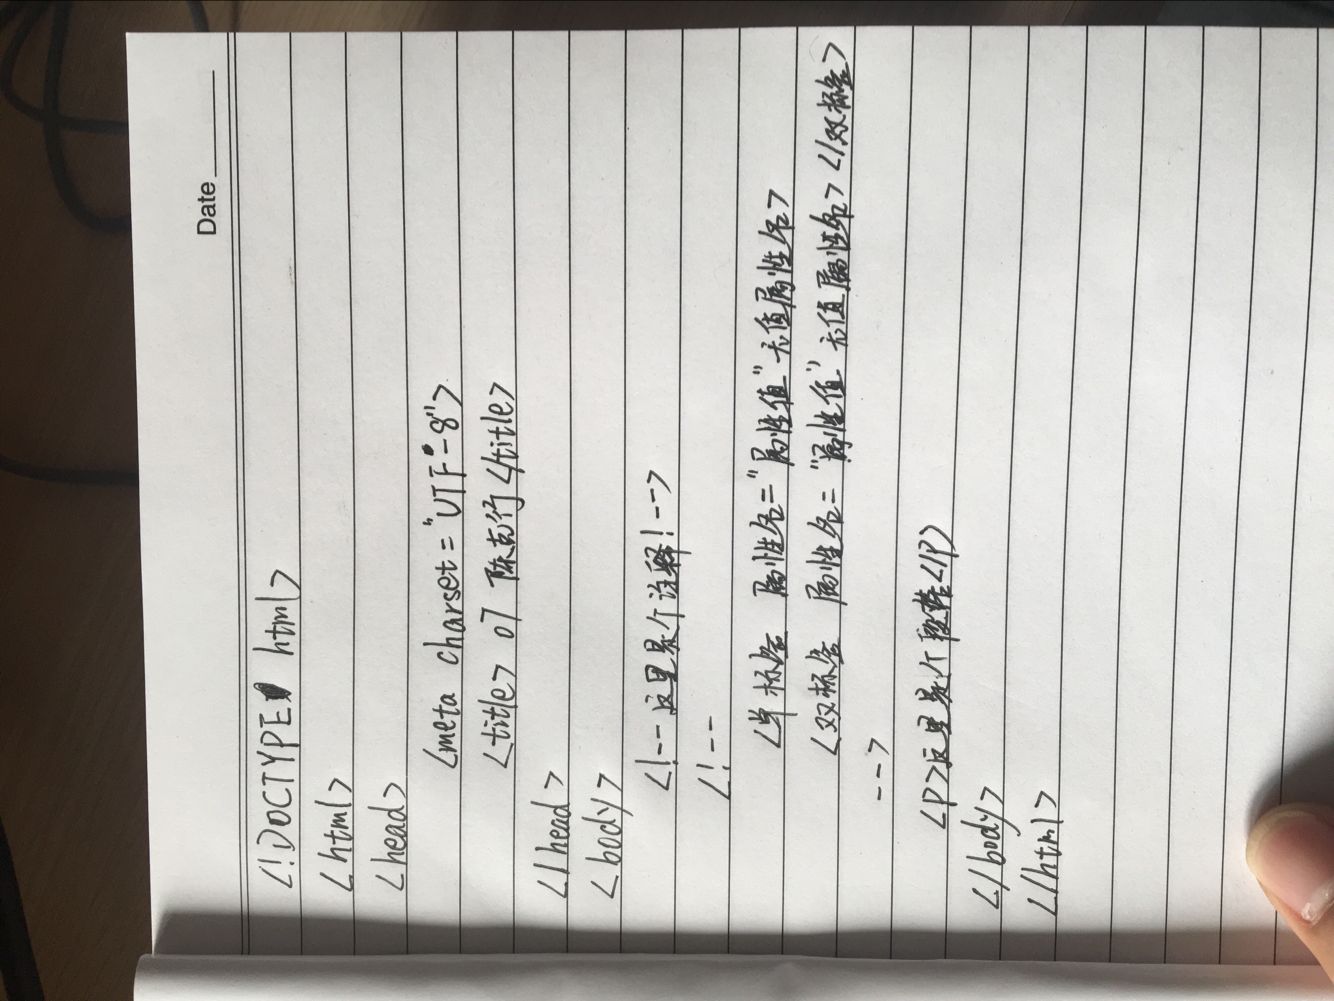 Date
<!DOCTYPE html>
<html>
<head>
<meta charset="UTF-8">
<title> 07 陈克行</title>
</head>
<body>
<!--这里是个注释!-->
<!--
<单标签 属性名="属性值" 无值属性名>
<双标签 属性名="属性值" 无值属性名></双标签>
-->
<p>这里是个段落</p>
</body>
</html>